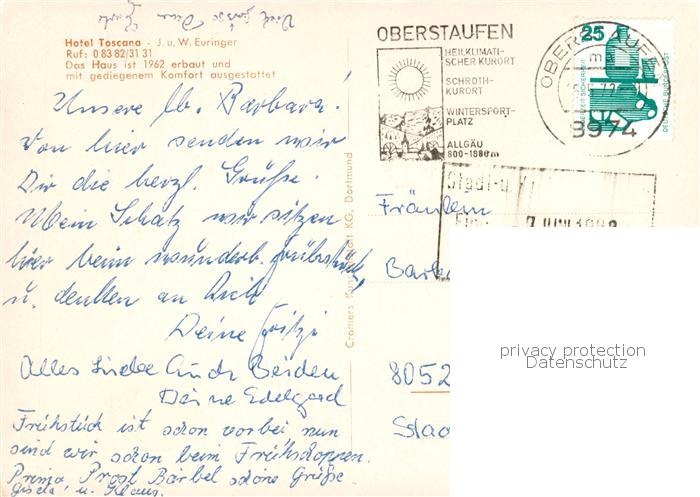 Dich grüsst Deine
Hotel Toscana - J. u. W. Euringer
Ruf: 0 83 82/31 31
Das Haus ist 1962 erbaut und
mit gediegenem Komfort ausgestattet
Unsere lb. Barbara!
Von hier senden wir
Dir die herzl. Grüße.
Mein Schatz wir sitzen
hier beim wunderb. Frühstück
u. denken an Dich
Deine Fritzi
Alles Liebe Euch Beiden
Deine Edelgard
Frühstück ist schon vorbei nun
sind wir schon beim Frühschoppen.
Prima Prost Bärbel schöne Grüße
Gisela u. Klaus.
Cramers Kunstanstalt KG, Dortmund
OBERSTAUFEN
HEILKLIMATI-
SCHER KURORT
SCHROTH-
KURORT
WINTERSPORT-
PLATZ
ALLGÄU
800-1880 m
OBERSTAUFEN
8974
25
DEUTSCHE BUNDESPOST
Stadt-u.
Fräulein
Barb
8052
privacy protection
Datenschutz